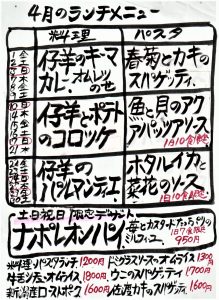 4月のランチメニュー
料理 パスタ
仔羊のキーマ
カレー オムレツ
のせ
春菊とカキの
スパゲッティ.
仔羊とポテト
のコロッケ
魚と貝のアク
アパッツァソース
1日10食限定
仔羊の
パルマンティエ
ホタルイカと
菜花のソース
1日10食限定
土日祝日 限定デザート
ナポレオンパイ
苺とカスタードたっぷりの
ミルフィーユ
1日7食限定
950円
料理・パスタランチ 1200円
ドゥグラスソースのオムライス 1300円
牛モツ煮オムライス 1800円
ウニのスパゲッティ 1700円
新潟産ローストポーク 1600円
佐渡カキのスパゲッティ. 1600円